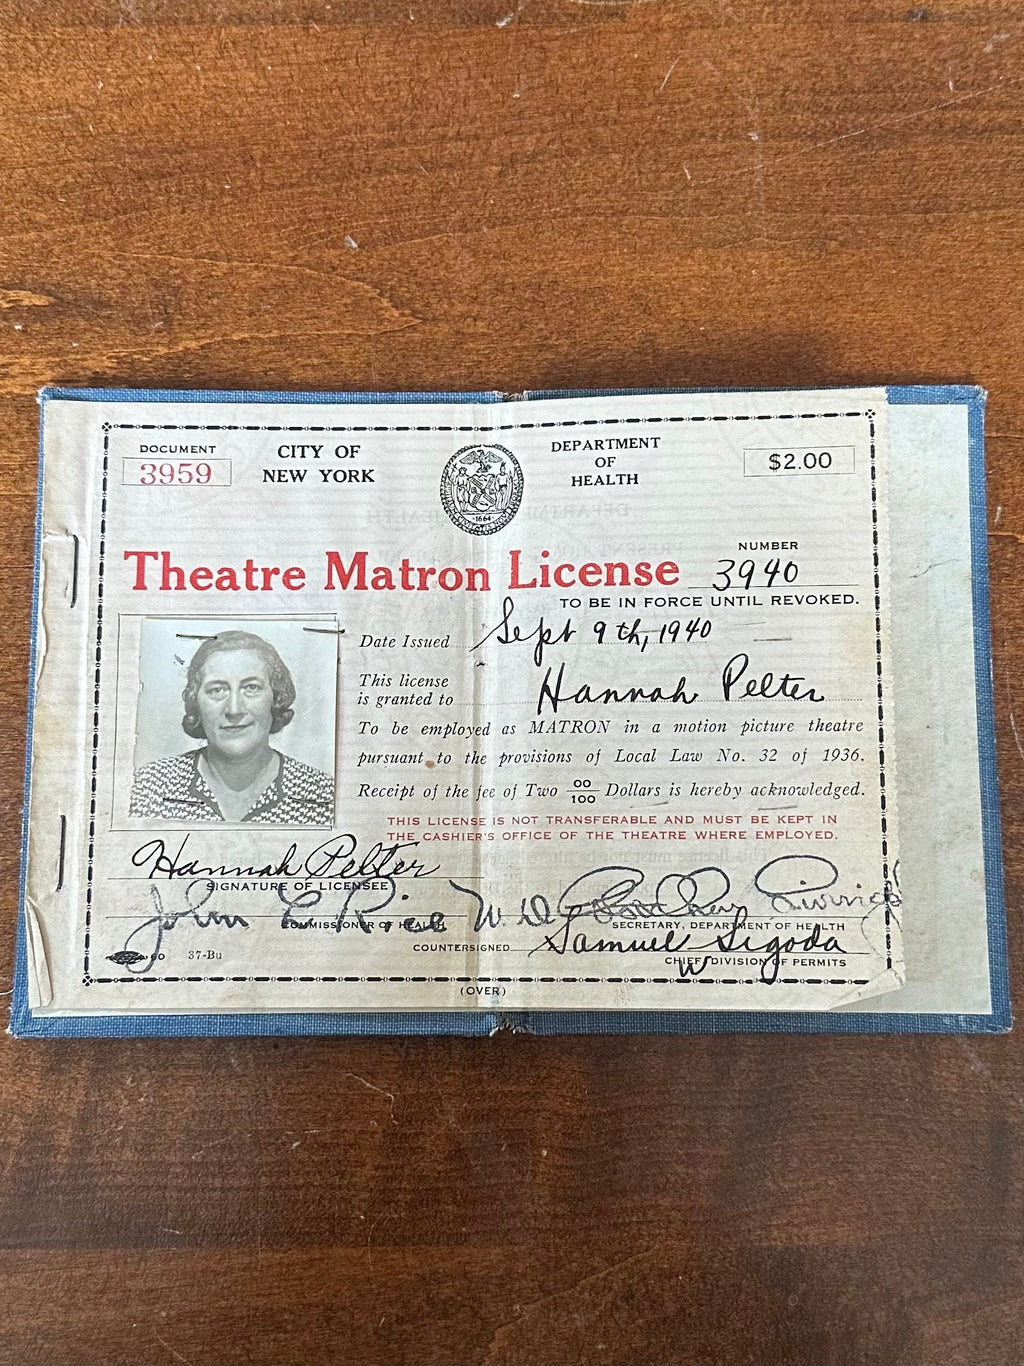 DOCUMENT
3959
CITY OF
NEW YORK
1664
DEPARTMENT
OF
HEALTH
$2.00
Theatre Matron License
NUMBER
3940
TO BE IN FORCE UNTIL REVOKED.
Date Issued Sept 9th, 1940
This license
is granted to Hannah Pelter
To be employed as MATRON in a motion picture theatre
pursuant to the provisions of Local Law No. 32 of 1936.
Receipt of the fee of Two 00/100 Dollars is hereby acknowledged.
THIS LICENSE IS NOT TRANSFERABLE AND MUST BE KEPT IN
THE CASHIER'S OFFICE OF THE THEATRE WHERE EMPLOYED.
Hannah Pelter
SIGNATURE OF LICENSEE
John L. Rice
COMMISSIONER OF HEALTH
SECRETARY, DEPARTMENT OF HEALTH
COUNTERSIGNED Samuel Sigoda
CHIEF, DIVISION OF PERMITS
37-Bu
(OVER)